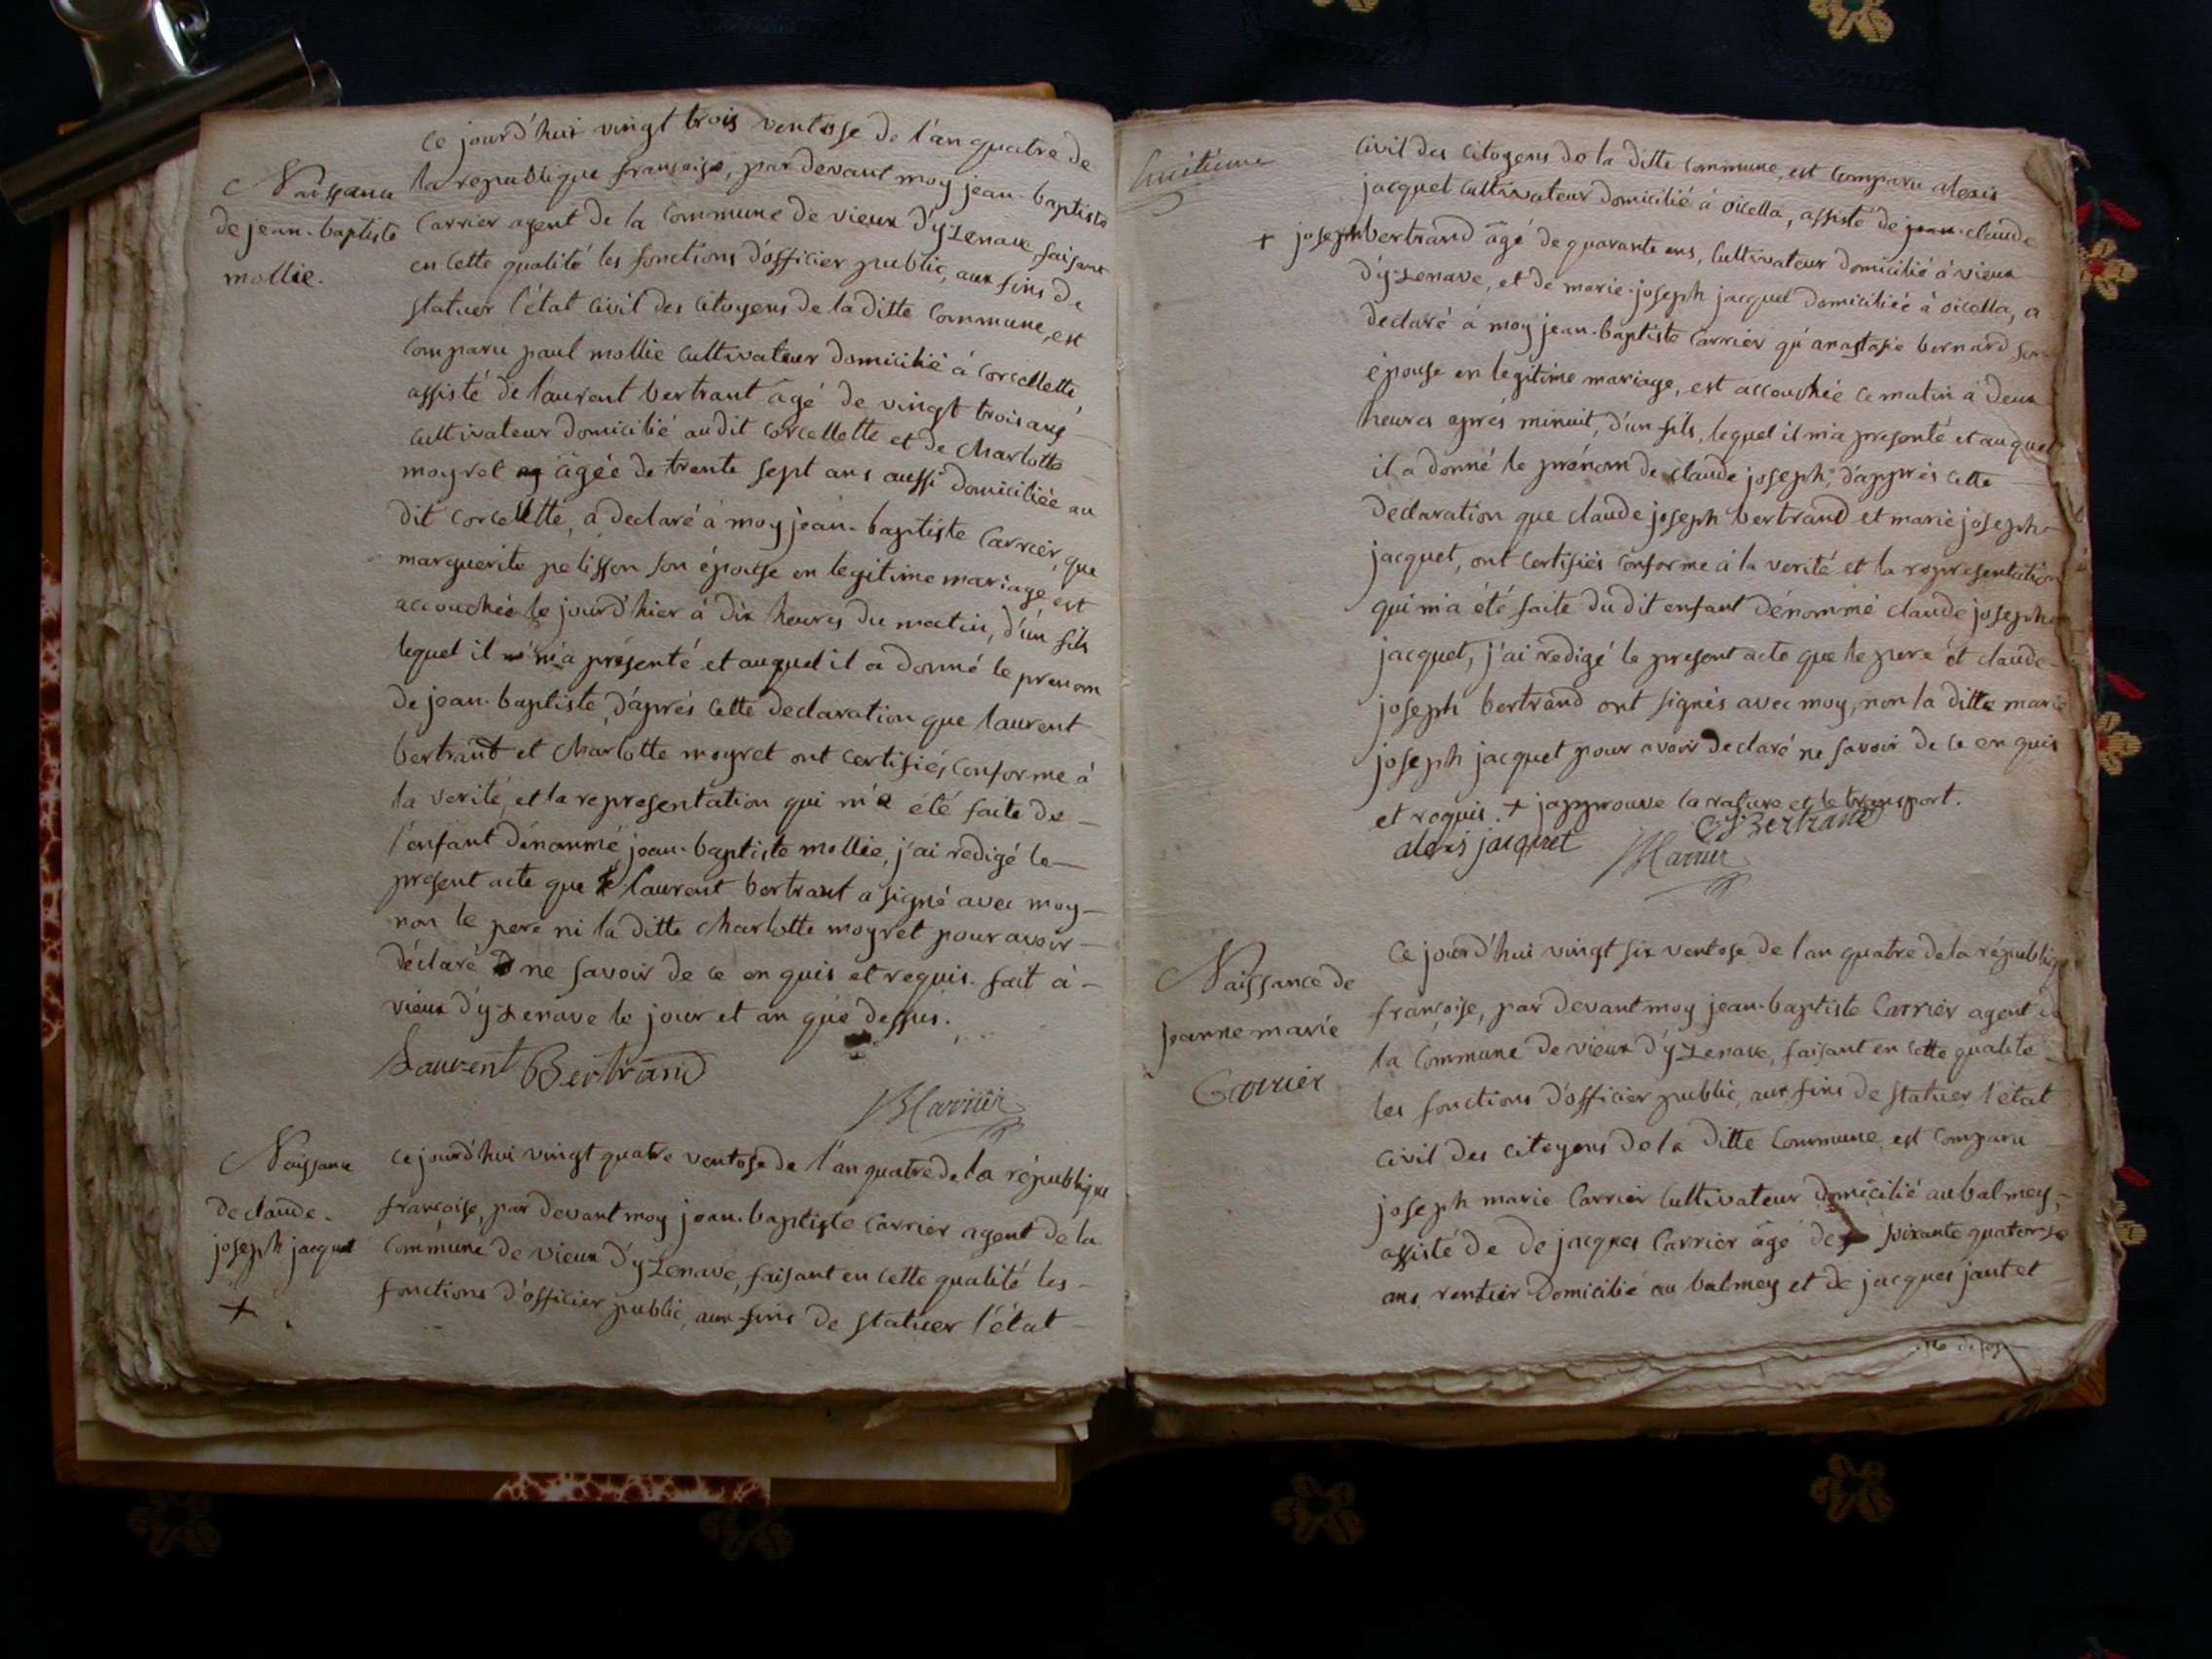 Naissance
de jean-baptiste
mollie.
Ce jourd'hui vingt trois ventose de l'an quatre de
la republique françoise, par devant moy jean-baptiste
Carrier agent de la Commune de vieux d'yzenave, faisant
en cette qualité les fonctions d'officier public, aux fins de
statuer l'état civil des citoyens de la ditte Commune, est
comparu paul mollie cultivateur domicilié à corcellette,
assisté de laurent bertrant âgé de vingt trois ans
cultivateur domicilié au dit corcellette et de charlotte
moyret âgée de trente sept ans aussi domiciliée au
dit corcellette, a declaré à moy jean-baptiste Carrier, que
marguerite pelisson son épouse en legitime mariage est
accouchée le jourd'hier à dix heures du matin, d'un fils
lequel il m'a présenté et auquel il a donné le prenom
de jean-baptiste, d'aprés cette declaration que laurent
bertrant et charlotte moyret ont certifiés conforme à
la verité, et la representation qui m'a été faite de
l'enfant dénommé jean-baptiste mollie, j'ai redigé le
present acte que laurent bertrant a signé avec moy
non le pere ni la ditte charlotte moyret pour avoir
déclaré ne savoir de ce en quis et requis. fait à
vieux d'yzenave le jour et an que dessus.
Laurent Bertrand
JBCarrier
Naissance
de claude-
joseph jacquet
+
Ce jourd'hui vingt quatre ventose de l'an quatre de la république
françoise, par devant moy jean-baptiste Carrier agent de la
Commune de vieux d'yzenave, faisant en cette qualité les
fonctions d'officier public, aux fins de statuer l'état
huitieme
civil des citoyens de la ditte Commune, est comparu alexis
jacquet cultivateur domicilié à oicella, assisté de jean claude
+ joseph bertrand âgé de quarante ans, cultivateur domicilié à vieux
d'yzenave, et de marie-joseph jacquet domiciliée à oicella, a
declaré à moy jean-baptiste Carrier qu'anastasie bernard son
épouse en legitime mariage, est accouchée ce matin à deux
heures aprés minuit, d'un fils, lequel il m'a presenté et auquel
il a donné le prénom de claude joseph, d'apprés cette
declaration que claude joseph bertrand et marie joseph
jacquet, ont certifiés conforme à la verité et la representation
qui m'a été faite du dit enfant dénommé claude joseph
jacquet, j'ai redigé le present acte que le pere et claude-
joseph bertrand ont signés avec moy, non la ditte marie
joseph jacquet pour avoir declaré ne savoir de ce en quis
et requis. + japprouve la rature et le transport.
alexis jacquet
CJBertrand
JBCarrier
Naissance de
jeanne marie
Carrier
Ce jourd'hui vingt six ventose de l'an quatre de la républiq
françoise, par devant moy jean-baptiste Carrier agent de
la Commune de vieux d'yzenave, faisant en cette qualité
les fonctions d'officier public, aux fins de statuer l'état
civil des citoyens de la ditte Commune est comparu
joseph marie Carrier cultivateur domicilié au balmey,
assisté de de jacques Carrier âgé de soixante quatorze
ans rentier domicilié au balmey et de jacques jantet